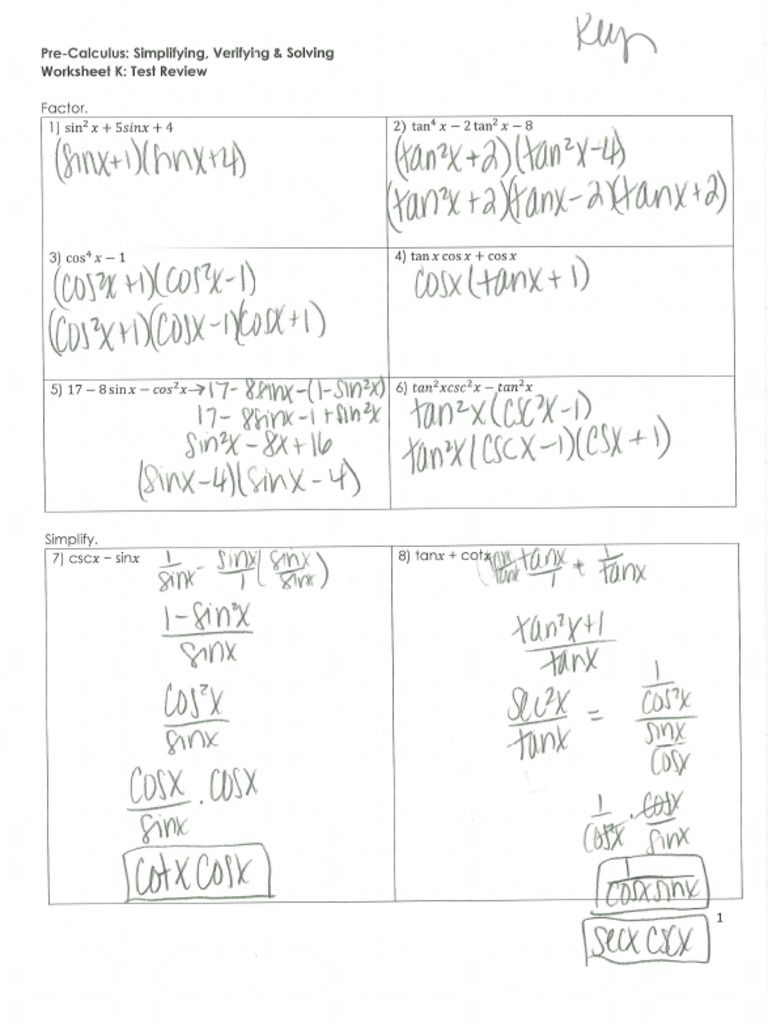 Key
Pre-Calculus: Simplifying, Verifying & Solving
Worksheet K: Test Review
Factor.
1) sin² x + 5sinx + 4
(sinx+1)(sinx+4)
2) tan⁴ x − 2 tan² x − 8
(tan²x+2)(tan²x-4)
(tan²x+2)(tanx-2)(tanx+2)
3) cos⁴ x − 1
(cos²x+1)(cos²x-1)
(cos²x+1)(cosx-1)(cosx+1)
4) tan x cos x + cos x
cosx(tanx+1)
5) 17 − 8 sin x − cos²x → 17-8sinx-(1-sin²x)
17-8sinx-1+sin²x
sin²x-8x+16
(sinx-4)(sinx-4)
6) tan²xcsc²x − tan²x
tan²x(csc²x-1)
tan²x(cscx-1)(csx+1)
Simplify.
7) cscx − sinx 1/sinx - sinx/1 (sinx/sinx)
1-sin²x/sinx
cos²x/sinx
cosx/sinx · cosx
cotx cosx
8) tanx + cotx (tanx/tanx) tanx/1 + 1/tanx
tan²x+1/tanx
sec²x/tanx = 1/cos²x / sinx/cosx
1/cos²x · cosx/sinx
1/cosxsinx
secx cscx
1